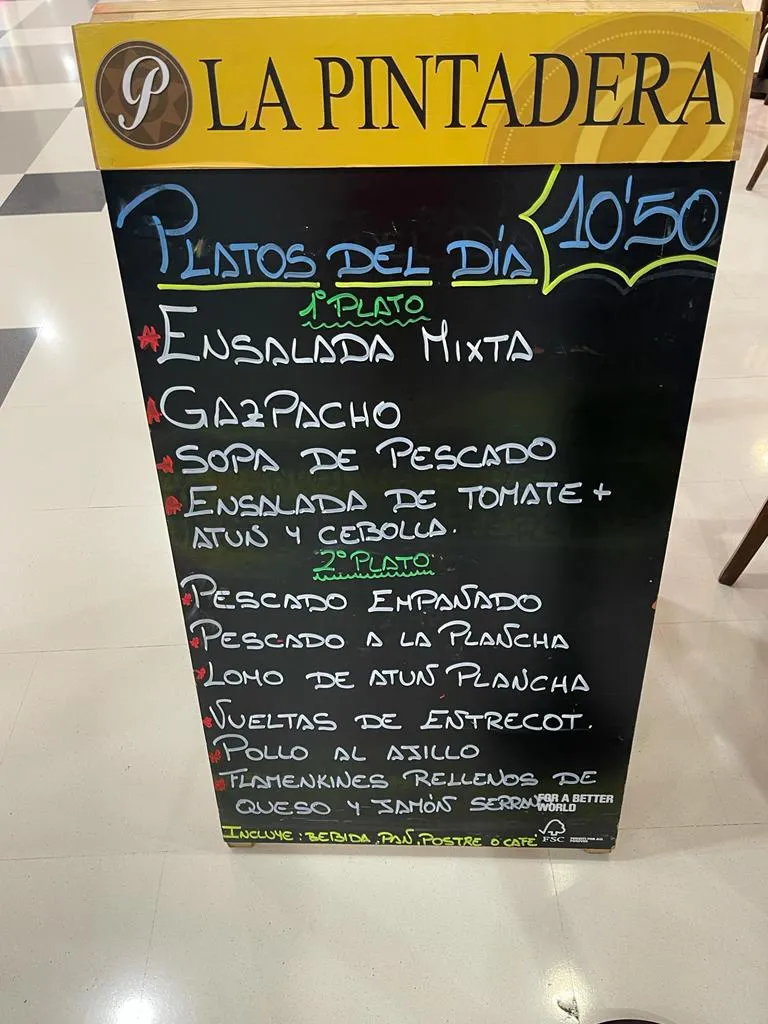 P LA PINTADERA
PLATOS DEL DÍA 10'50
1º PLATO
* ENSALADA MIXTA
* GAZPACHO
* SOPA DE PESCADO
* ENSALADA DE TOMATE +
ATUN Y CEBOLLA.
2º PLATO
* PESCADO EMPAÑADO
* PESCADO A LA PLANCHA
* LOMO DE ATUN PLANCHA
* VUELTAS DE ENTRECOT.
* POLLO AL AJILLO
* FLAMENKINES RELLENOS DE
QUESO Y JAMÓN SERRAN
FOR A BETTER
WORLD
INCLUYE: BEBIDA, PAN, POSTRE O CAFÉ
FSC